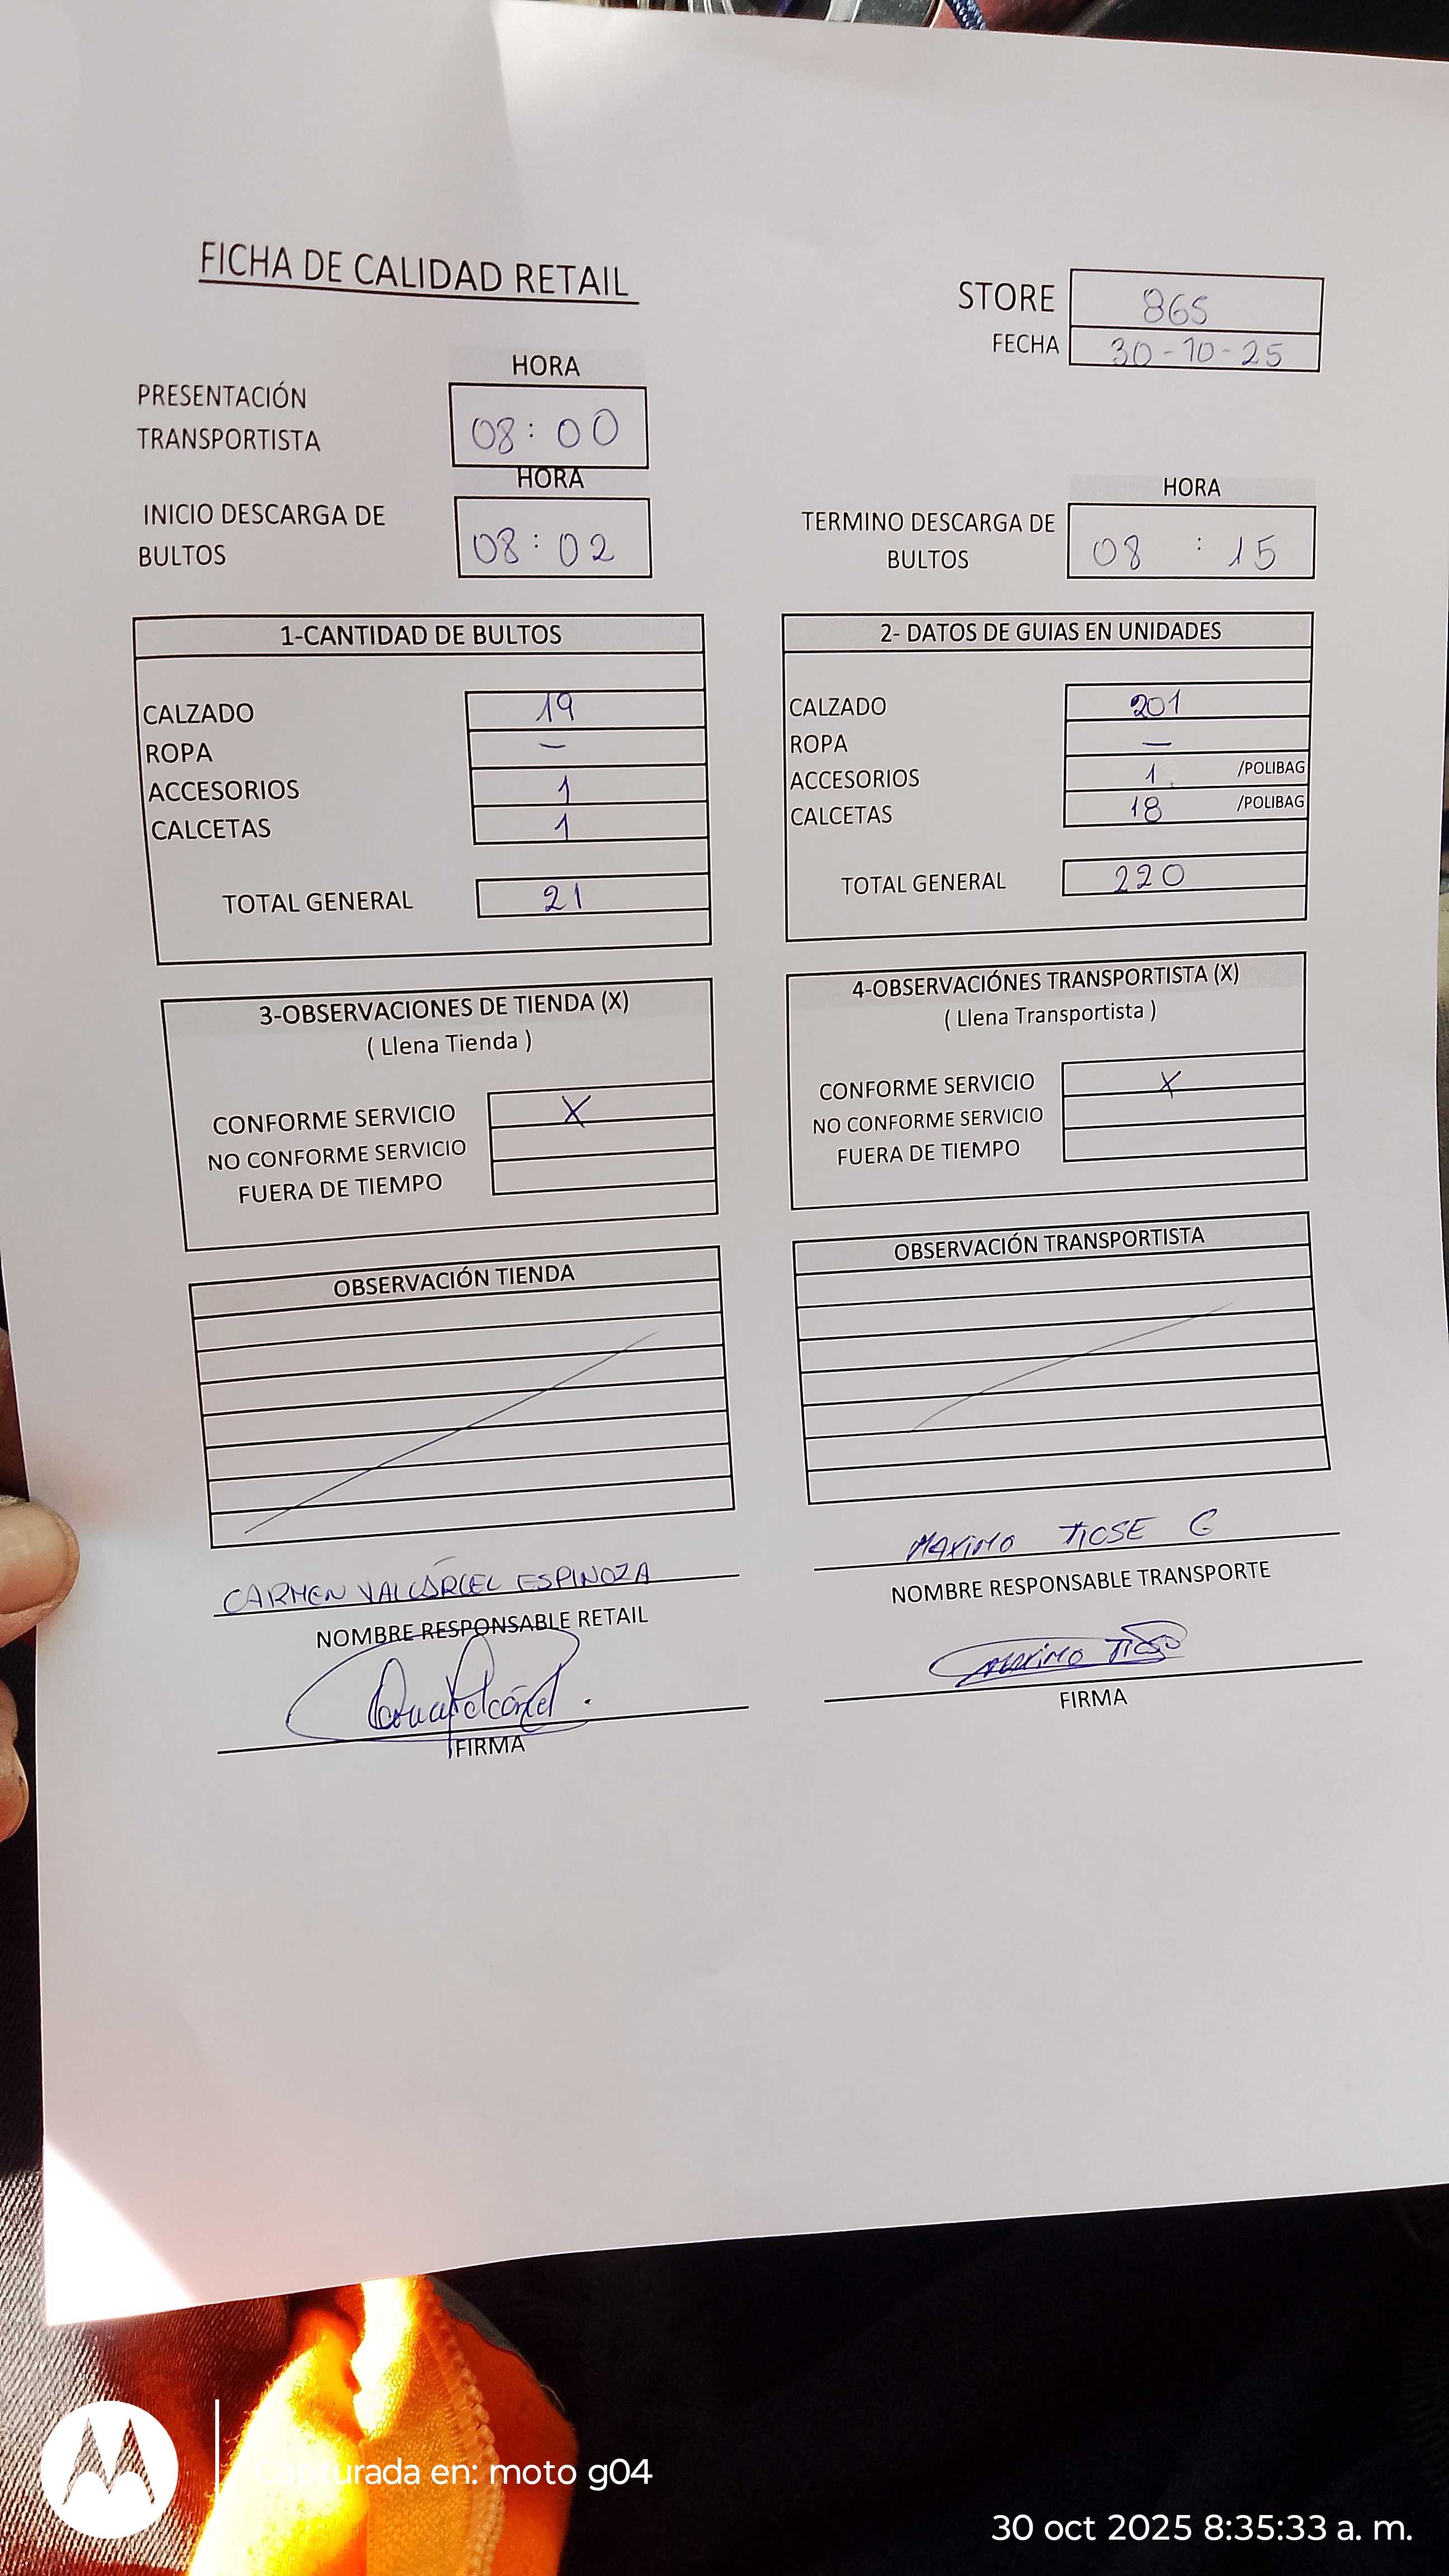 FICHA DE CALIDAD RETAIL
STORE 865
FECHA 30-10-25
HORA
PRESENTACIÓN
TRANSPORTISTA
08:00
HORA
INICIO DESCARGA DE
BULTOS
08:02
HORA
TERMINO DESCARGA DE
BULTOS
08 : 15
1-CANTIDAD DE BULTOS
CALZADO 19
ROPA —
ACCESORIOS 1
CALCETAS 1
TOTAL GENERAL 21
2- DATOS DE GUIAS EN UNIDADES
CALZADO 201
ROPA —
ACCESORIOS 1 /POLIBAG
CALCETAS 18 /POLIBAG
TOTAL GENERAL 220
3-OBSERVACIONES DE TIENDA (X)
( Llena Tienda )
CONFORME SERVICIO X
NO CONFORME SERVICIO
FUERA DE TIEMPO
4-OBSERVACIÓNES TRANSPORTISTA (X)
( Llena Transportista )
CONFORME SERVICIO X
NO CONFORME SERVICIO
FUERA DE TIEMPO
OBSERVACIÓN TIENDA
OBSERVACIÓN TRANSPORTISTA
CARMEN VALCÁRCEL ESPINOZA
NOMBRE RESPONSABLE RETAIL
FIRMA
MAXIMO TICSE G
NOMBRE RESPONSABLE TRANSPORTE
Maximo Ticse
FIRMA
Capturada en: moto g04
30 oct 2025 8:35:33 a. m.